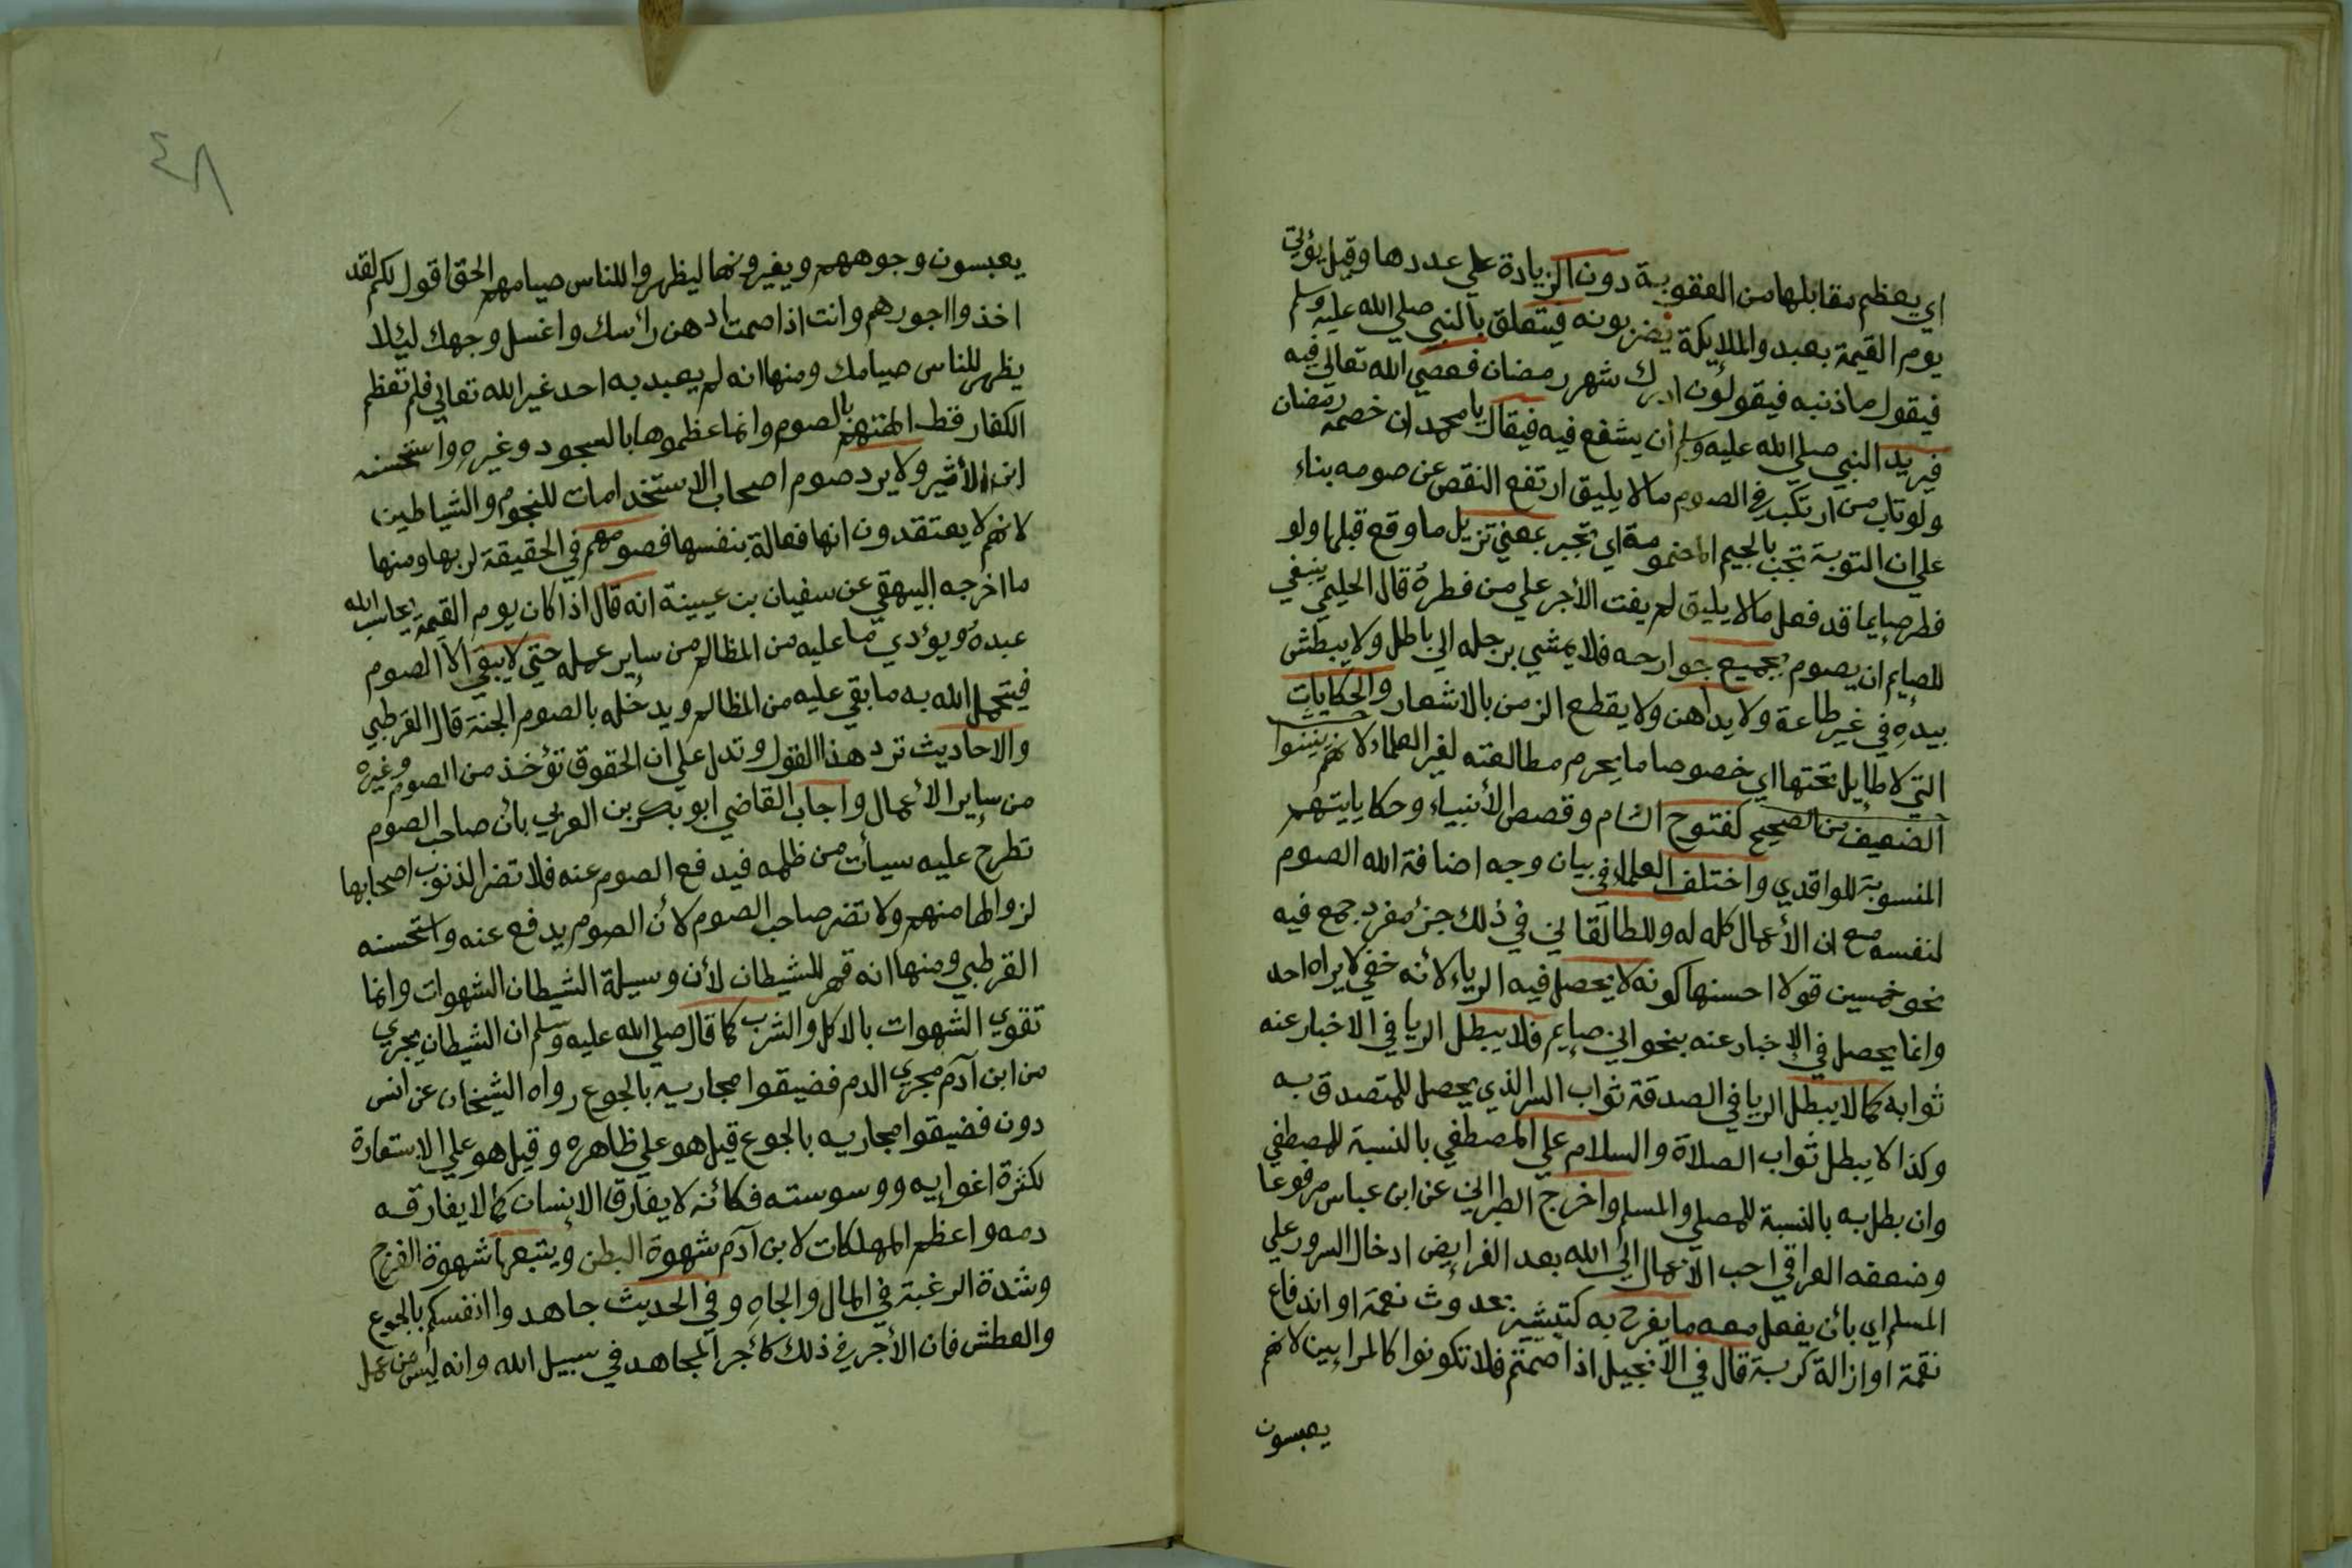 اي يعظم مقابلها من العقوبة دون الزيادة علي عددها وقيل يؤتي
يوم القيمة بعبد والملايكة يضربونه فيتعلق بالنبي صلي الله عليه وسلم
فيقول ما ذنبه فيقولون ادرك شهر رمضان فعصي الله تعالي فيه
فيريد النبي صلي الله عليه وسلم أن يشفع فيه فيقال يا محمد ان خصمه رمضان
ولو تاب من ارتكب في الصوم ما لا يليق ارتفع النقص عن صومه بناء
علي ان التوبة تجب بالجيم المضمومة اي تجبر بمعني تزيل ما وقع قبلها ولو
فطر صايما قد فعل ما لا يليق لم يفت الأجر علي من فطره قال الحليمي ينبغي
للصايم ان يصوم بجميع جوارحه فلا يمشي برجله الي باطل ولا يبطش
بيده في غير طاعة ولا يداهن ولا يقطع الزمن بالاشعار والحكايات
التي لا طايل تحتها اي خصوصا ما يحرم مطالعته لغير العلماء لانهم
الضعيف من الصحيح كفتوح الشام وقصص الأنبياء وحكاياتهم
المنسوبة للواقدي واختلف العلماء في بيان وجه اضافة الله الصوم
لنفسه مع ان الأعمال كله له وللطالقاني في ذلك جزء مفرد جمع فيه
نحو خمسين قولا احسنها كونه لا يحصل فيه الرياء لأنه خفي لا يراه احد
وانما يحصل في الإخبار عنه بنحو اني صايم فلا يبطل الريا في الاخبار عنه
ثوابه كما لا يبطل الريا في الصدقة ثواب السر الذي يحصل للمتصدق به
وكذا لا يبطل ثواب الصلاة والسلام علي المصطفي بالنسبة للمصطفي
وان بطل به بالنسبة للمصلي والمسلم واخرج الطبراني عن ابن عباس مرفوعا
وضعفه العراقي احب الأعمال الي الله بعد الفرايض ادخال السرور علي
المسلم اي بأن يفعل معه ما يفرح به كتبشيره بحدوث نعمة او اندفاع
نقمة او ازالة كربة قال في الانجيل اذا صمتم فلا تكونوا كالمرايين لانهم
يعبسون
٤٨
يعبسون وجوههم ويغيرونها ليظهروا للناس صيامهم الحق اقول لكم لقد
اخذوا اجورهم وانت اذا صمت ادهن رأسك واغسل وجهك ليلا
يظهر للناس صيامك ومنها انه لم يعبد به احد غير الله تعالي فلم تعظم
الكفار قط الهتهم بالصوم وانما عظموها بالسجود وغيره واستحسنه
ابن الأثير ولا يرد صوم اصحاب الاستخدامات للنجوم والشياطين
لانهم لا يعتقدون انها فعالة بنفسها فصومهم في الحقيقة لربها ومنها
ما اخرجه البيهقي عن سفيان بن عيينة انه قال اذا كان يوم القيمة يحاسب الله
عبده ويؤدي ما عليه من المظالم من ساير عمله حتي لا يبقي الا الصوم
فيتحمل الله به ما بقي عليه من المظالم ويدخله بالصوم الجنة قال القرطبي
والاحاديث ترد هذا القول وتدل علي ان الحقوق تؤخذ من الصوم وغيره
من ساير الأعمال واجاب القاضي ابو بكر بن العربي بأن صاحب الصوم
تطرح عليه سيأت من ظلمه فيدفع الصوم عنه فلا تضر الذنوب اصحابها
لزوالها منهم ولا تضر صاحب الصوم لأن الصوم يدفع عنه واستحسنه
القرطبي ومنها انه قهر للشيطان لأن وسيلة الشيطان الشهوات وانما
تقوي الشهوات بالاكل والشرب كما قال صلي الله عليه وسلم ان الشيطان يجري
من ابن آدم مجري الدم فضيقوا مجاريه بالجوع رواه الشيخان عن انس
دون فضيقوا مجاريه بالجوع قيل هو علي ظاهره وقيل هو علي الاستعارة
لكثرة اغوايه ووسوسته فكأنه لا يفارق الإنسان كما لا يفارقه
دمه واعظم المهلكات لابن آدم شهوة البطن ويتبعها شهوة الفرج
وشدة الرغبة في المال والجاه وفي الحديث جاهدوا انفسكم بالجوع
والعطش فان الأجر في ذلك كأجر المجاهد في سبيل الله وانه ليس من عمل